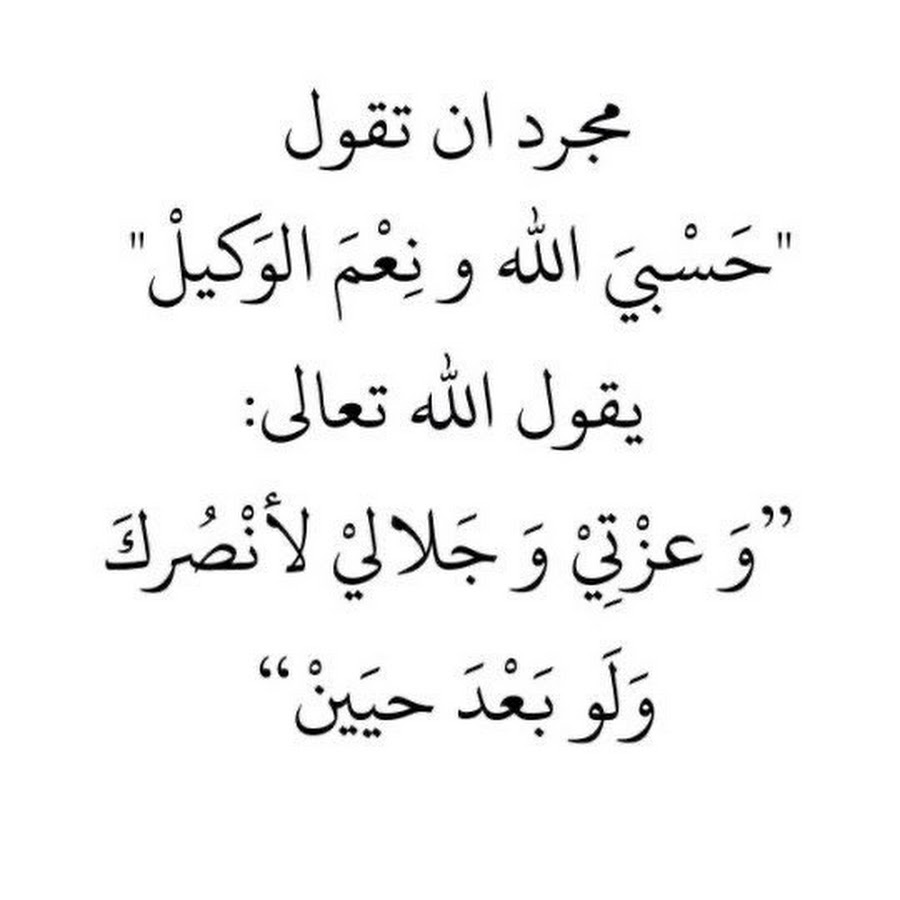 مجرد ان تقول
"حَسْبيَ الله و نِعْمَ الوَكيلْ"
يقول الله تعالى:
”وَ عزْتِيْ وَ جَلاليْ لأنْصُركَ
وَلَو بَعْدَ حيَينْ“